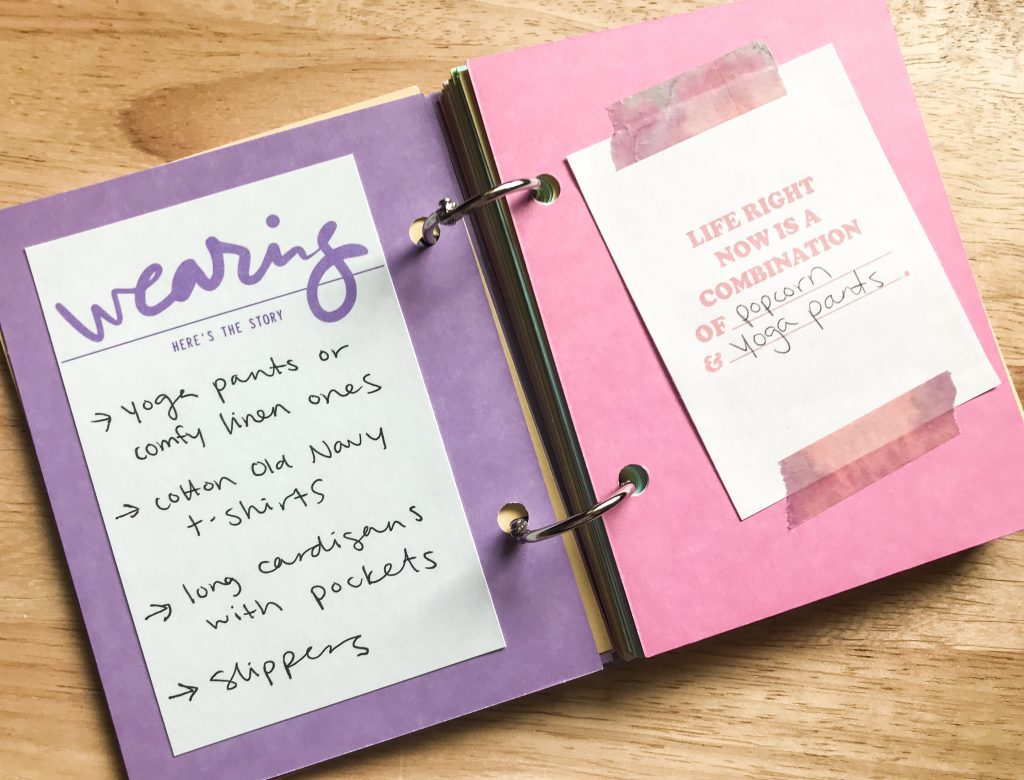 wearing
HERE'S THE STORY
→ yoga pants or
comfy linen ones
→ cotton Old Navy
t-shirts
→ long cardigans
with pockets
→ slippers
LIFE RIGHT
NOW IS A
COMBINATION
OF popcorn
& yoga pants.